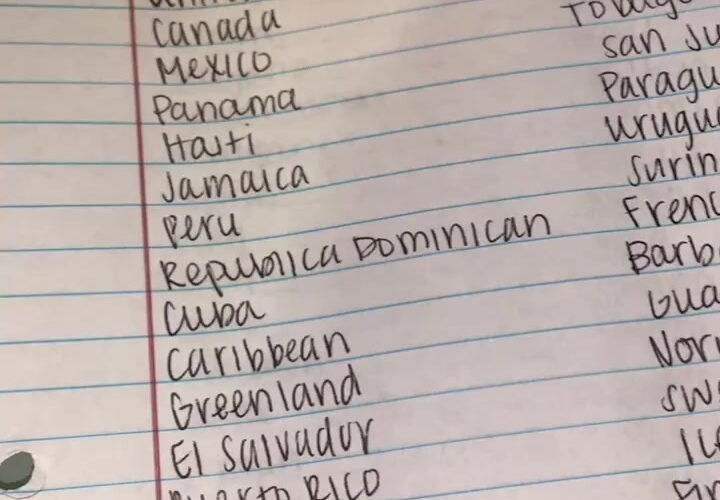 Canada
Mexico
Panama
Haiti
Jamaica
Peru
Republica Dominican
Cuba
Caribbean
Greenland
El Salvador
Puerto Rico
Tobago
San Ju
Paragu
Urugu
Surin
Frenc
Barb
Gua
Nor
Sw